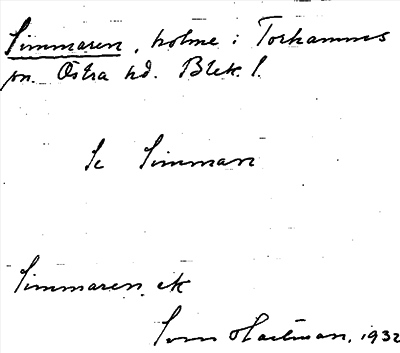 Simmaren, holme i Torhamns
sn. Östra hd. Blek. l.
Se Simman
Simmaren, ek
Sven Hartman, 1932